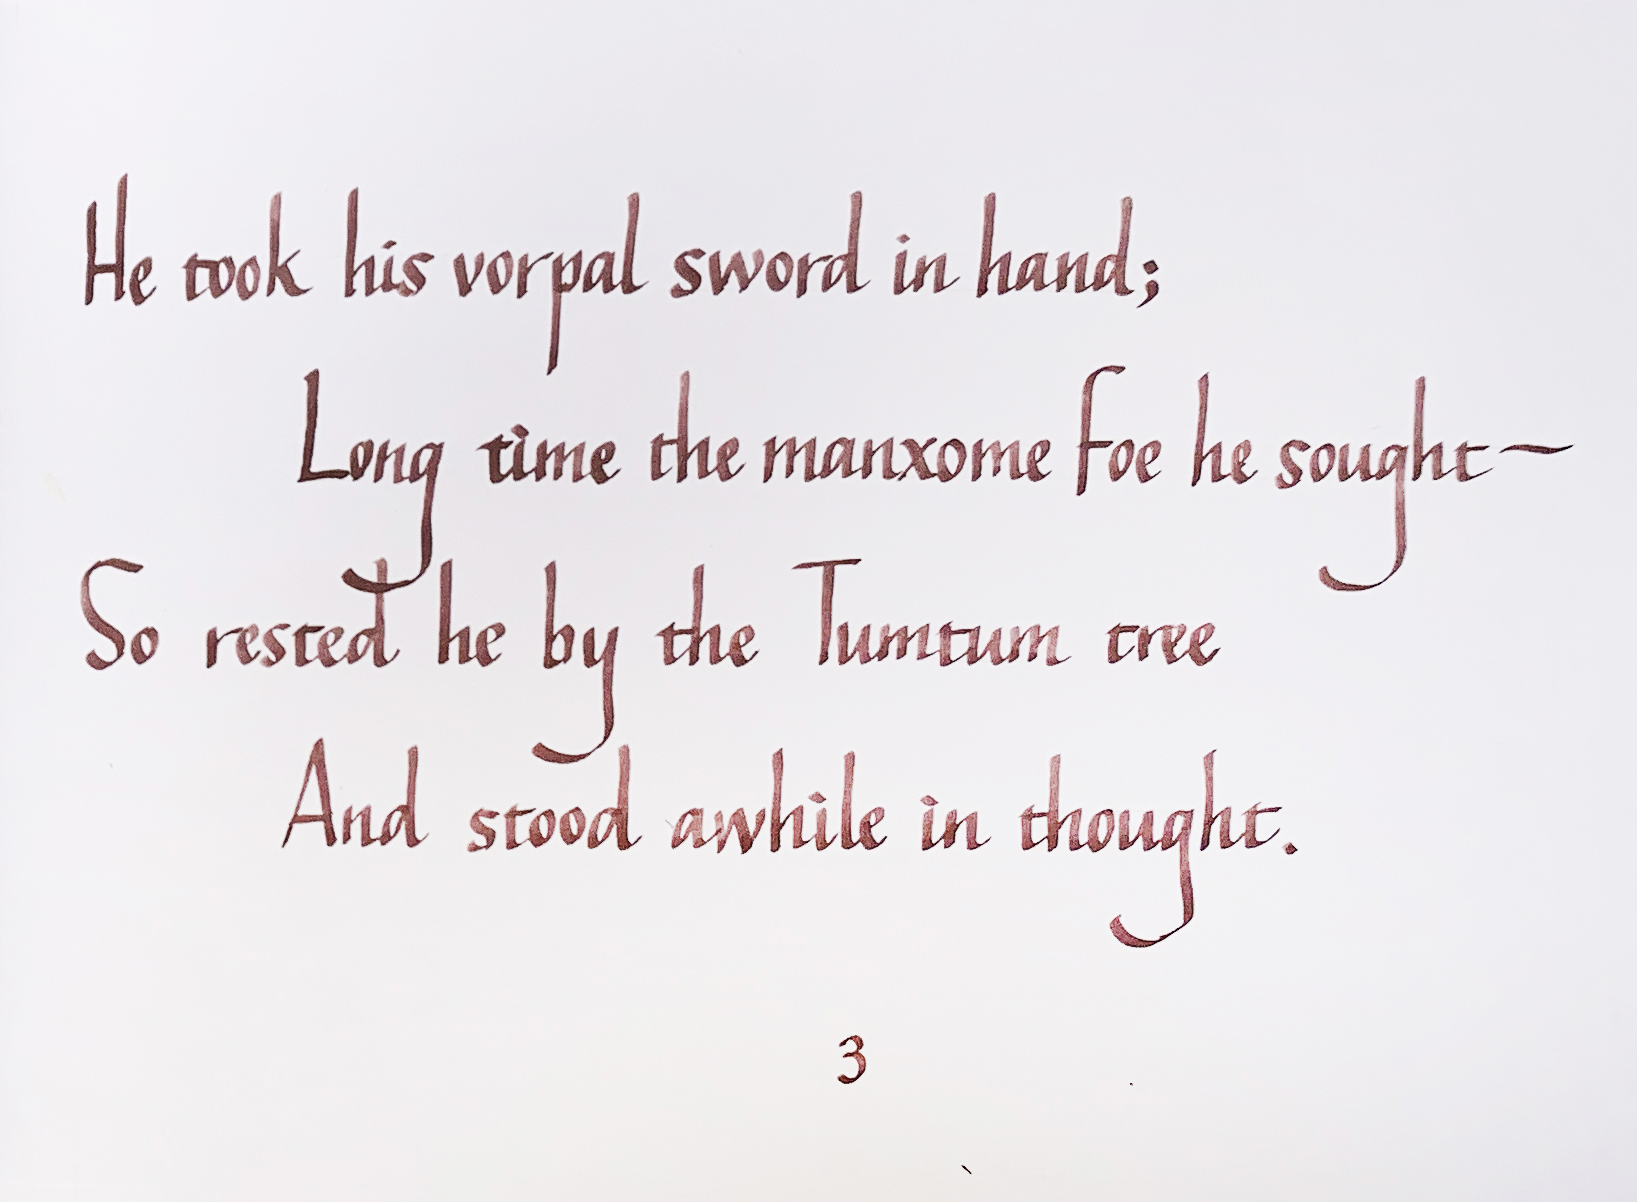 He took his vorpal sword in hand;
Long time the manxome foe he sought—
So rested he by the Tumtum tree
And stood awhile in thought.
3